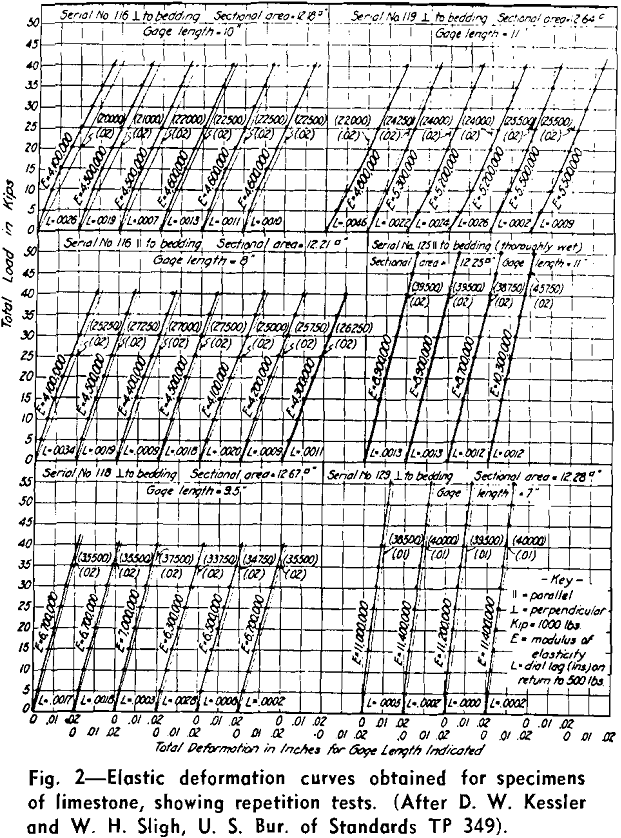 Serial No 116 ⊥ to bedding Sectional area = 12.18 □"
Gage length = 10"
Serial No. 119 ⊥ to bedding Sectional area = 12.64
Gage length = 11"
50
45
40
35
30
25
20
15
10
5
0
(20000) (21000) (22000) (22500) (22500) (22500)
(.02) (.02) (.02) (.02) (.02) (.02)
E=4,600,000 E=4,600,000 E=4,600,000
L=.0026 L=.0019 L=.0007 L=.0013 L=.0011 L=.0010
(22000) (24250) (24000) (24000) (25500) (25500)
(.02) (.02) (.02) (.02) (.02) (.02)
E=4,800,000 E=5,300,000 E=5,500,000
L=.0046 L=.0022 L=.0024 L=.0026 L=.0002 L=.0009
Total Load in Kips
Serial No 116 || to bedding Sectional area = 12.21 □"
Gage length = 8"
Serial No. 125 || to bedding (thoroughly wet)
Sectional area = 12.25 □" Gage length = 11"
50
45
40
35
30
25
20
15
10
5
0
(25250) (27250) (27000) (27500) (25000) (25750) (26250)
(.02) (.02) (.02) (.02) (.02) (.02) (.02)
E=4,100,000 E=4,500,000 E=4,400,000 E=4,500,000 E=4,100,000 E=4,200,000 E=4,300,000
L=.0034 L=.0019 L=.0009 L=.0018 L=.0020 L=.0009 L=.0011
(39500) (39500) (38750) (45750)
(.02) (.02) (.02) (.02)
E=8,900,000 E=8,900,000 E=8,700,000 E=10,300,000
L=.0013 L=.0013 L=.0012 L=.0012
Serial No 118 ⊥ to bedding Sectional area = 12.67 □"
Gage length = 9.5"
Serial No 129 ⊥ to bedding Sectional area = 12.28 □"
Gage length = 7"
55
50
45
40
35
30
25
20
15
10
5
0
(35500) (35500) (37500) (33750) (34750) (35500)
(.02) (.02) (.02) (.02) (.02) (.02)
E=6,700,000 E=6,700,000 E=7,000,000 E=6,300,000 E=6,500,000 E=6,700,000
L=.0017 L=.0018 L=.0003 L=.0028 L=.0006 L=.0002
(38500) (40000) (39500) (40000)
(.01) (.01) (.01) (.01)
E=11,000,000 E=11,400,000 E=11,200,000 E=11,400,000
L=.0005 L=.0007 L=.0000 L=.0002
– Key –
|| = parallel
⊥ = perpendicular
Kip = 1000 lbs
E = modulus of
elasticity
L = dial lag (ins) on
return to 500 lbs
0 .01 .02 0 .01 .02 0 .01 .02 0 .01 .02 0 .01 .02 0 .01 .02
0 .01 .02 0 .01 .02 0 .01 .02 0 .01 .02 0 .01 .02
Total Deformation in Inches for Gage Length Indicated
Fig. 2—Elastic deformation curves obtained for specimens
of limestone, showing repetition tests. (After D. W. Kessler
and W. H. Sligh, U. S. Bur. of Standards TP 349).